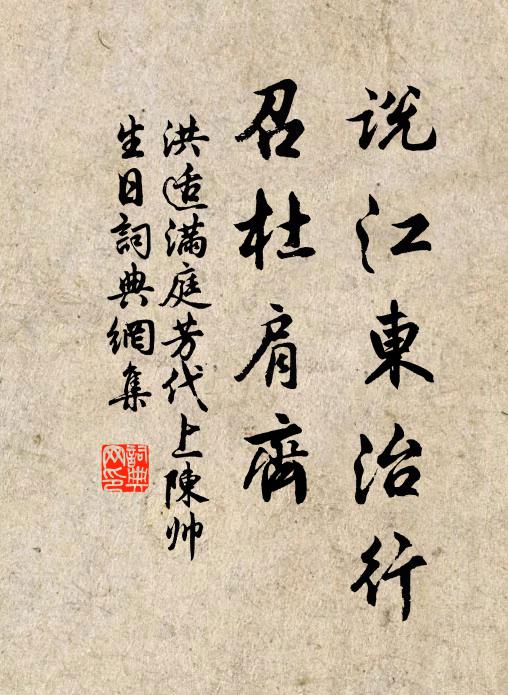 說江東治行
召杜肩齊
洪适滿庭芳代上陳帅
生日詞典網集
詞典网印